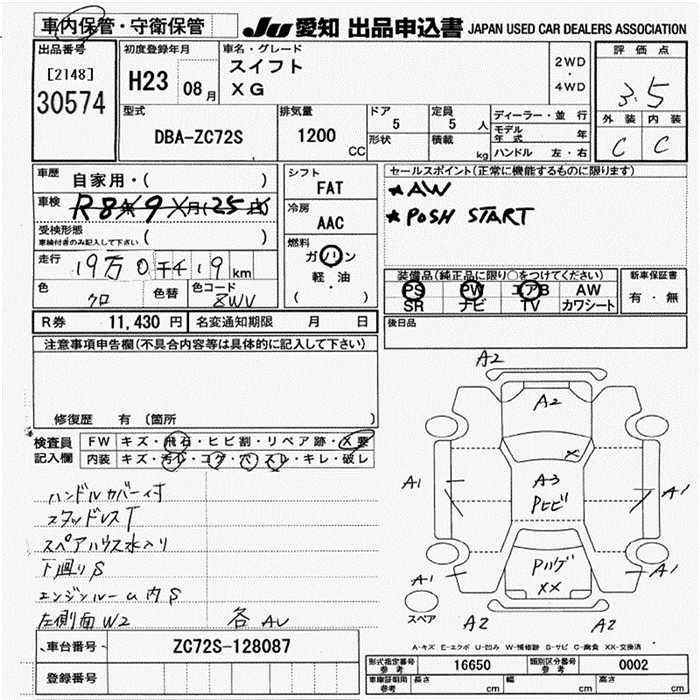 車内保管・守衛保管
JU 愛知 出品申込書 JAPAN USED CAR DEALERS ASSOCIATION
出品番号
[2148]
30574
初度登録年月
H23 08月
車名・グレード
スイフト
XG
2WD
・
4WD
評価点
3.5
外装 内装
C C
型式
DBA-ZC72S
排気量
1200 CC
ドア
5
定員
5 人
形状
積載
kg
ディーラー・並行
モデル年式 年
ハンドル 左・右
車歴
自家用・( )
車検
R8年9月(25日)
受検形態
車検付者のみ記入して下さい ( )
走行
19万0千419km
色
クロ
色替
色コード
ZWV
シフト
FAT
冷房
AAC
燃料
ガソリン
軽・油
( )
セールスポイント(正常に機能するものに限ります)
★AW
★PUSH START
装備品(純正品に限り○をつけてください)
PS PW エアB AW
SR ナビ TV カワシート
新車保証書
有・無
R券 11,430 円 名変通知期限 月 日
後日品
注意事項申告欄(不具合内容等は具体的に記入して下さい)
修復歴 有 (箇所 )
検査員記入欄
FW キズ・飛石・ヒビ割・リペア跡・X要
内装 キズ・汚レ・コゲ・穴・スレ・キレ・破レ
ハンドルカバー付
スタッドレスT
スペアハウス水入り
下廻りS
エンジンルーム内S
左側面W2 各AU
A2
A2
X
A1
A3
Pヒビ
A1
A1
Pハゲ
XX
A1
スペア
A2 A2
A-キズ E-エクボ U-凹み W-補修跡 S-サビ C-腐食 XX-交換済
車台番号 ZC72S-128087
登録番号
形式指定番号 参考 16650 類別区分番号 参考 0002
車庫証明用 参考 長さ cm 幅 cm 高さ cm